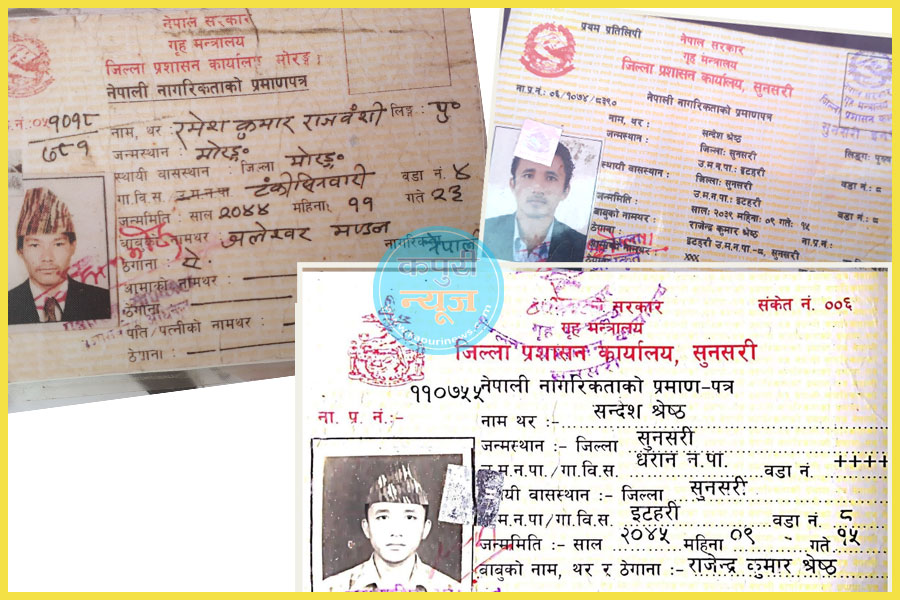 नेपाल सरकार
गृह मन्त्रालय
जिल्ला प्रशासन कार्यालय मोरङ्ग
नेपाली नागरिकताको प्रमाणपत्र
१०१८
७८१
नाम, थर : रमेश कुमार राजवंशी लिङ्ग : पु०
जन्मस्थान : मोरङ्ग
स्थायी वासस्थान : जिल्ला मोरङ्ग
गा.वि.स. उ.म.न.पा. टंकीसिनवारी वडा नं. ४
जन्ममिति : साल २०४४ महिना ११ गते २३
बाबुको नामथर जलेश्वर मण्डल
ठेगाना : ऐ
आमाको नामथर :
ठेगाना :
पति /पत्नीको नामथर :
ठेगाना :
प्रथम प्रतिलिपी
नेपाल सरकार
गृह मन्त्रालय
जिल्ला प्रशासन कार्यालय, सुनसरी
ना.प्र.नं.: ०६/१०७४/८३९०
नेपाली नागरिकताको प्रमाणपत्र
नाम, थर : सन्देश श्रेष्ठ
जन्मस्थान : जिल्ला: सुनसरी लिङ्ग: पुरुष
उ.म.न.पा.: इटहरी वडा नं.: ८
स्थायी वासस्थान : जिल्ला: सुनसरी
उ.म.न.पा.: इटहरी वडा नं.: ८
जन्ममिति : साल: २०३९ महिना: ०९ गते: १५
बाबुको नामथर: राजेन्द्र कुमार श्रेष्ठ ना.प्र.नं.:
ठेगाना : इटहरी उ.म.न.पा.-८, सुनसरी
xxx
कपुरी
न्यूज
सरकार
संकेत नं. ००६
गृह मन्त्रालय
जिल्ला प्रशासन कार्यालय, सुनसरी
११०७५५
नेपाली नागरिकताको प्रमाण-पत्र
ना. प्र. नं.:-
नाम थर :- सन्देश श्रेष्ठ
जन्मस्थान :- जिल्ला सुनसरी
उ.म.न.पा./गा.वि.स. धरान न.पा. वडा नं. ++++
स्थायी वासस्थान :- जिल्ला सुनसरी
उ.म.न.पा/गा.वि.स. इटहरी वडा नं. ८
जन्ममिति :- साल २०४५ महिना ०९ - गते १५
बाबुको नाम, थर र ठेगाना :- राजेन्द्र कुमार श्रेष्ठ